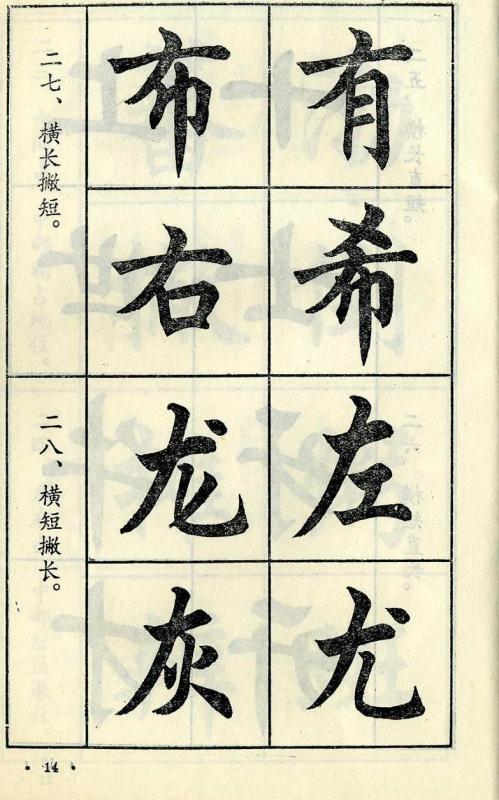 有希左尤
布右龙灰
二七、横长撇短。
二八、横短撇长。
• 14 •